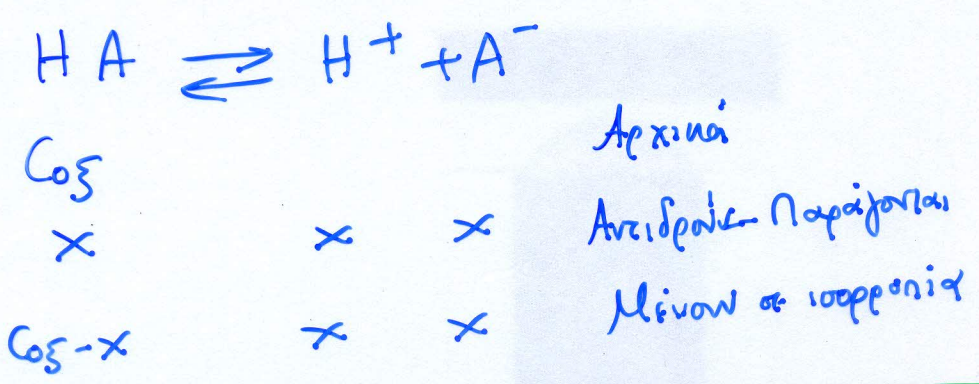 HA ⇌ H⁺ + A⁻
Cοξ Αρχικά
x x x Αντιδρούν - Παράγονται
Cοξ-x x x Μένουν σε ισορροπία